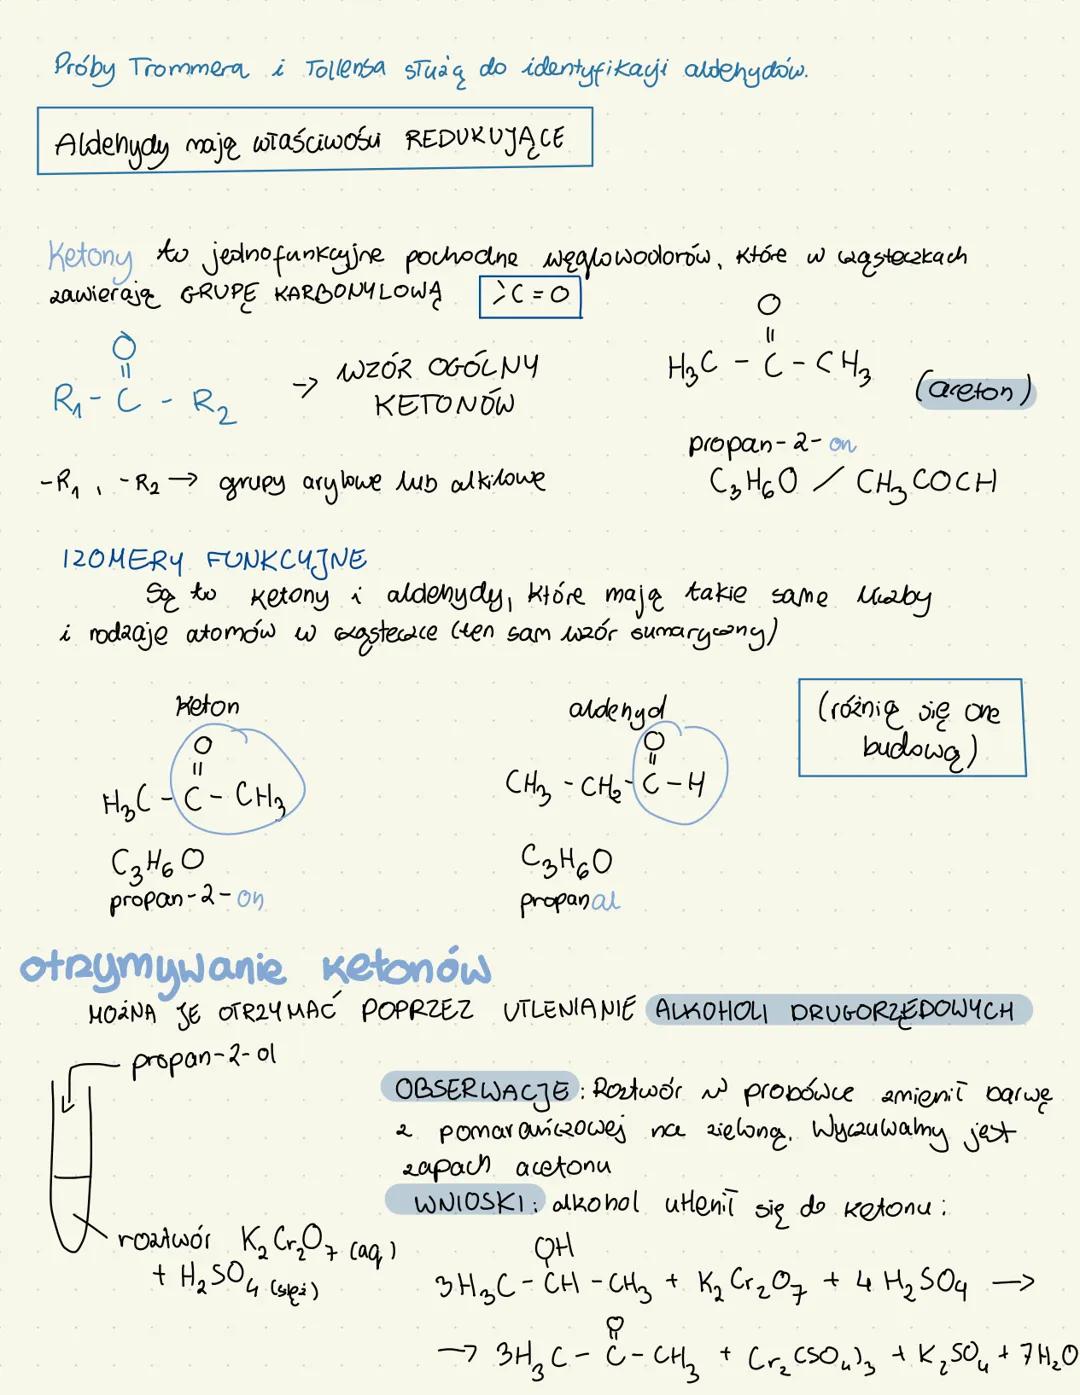 Próby Trommera i Tollensa służą do identyfikacji aldehydów.
Aldehydy mają właściwości REDUKUJĄCE
Ketony to jednofunkcyjne pochodne węglowodorów, które w cząsteczkach
zawierają GRUPĘ KARBONYLOWĄ >C=O
O
||
R₁ - C - R₂
-> WZÓR OGÓLNY
KETONÓW
O
||
H₃C - C - CH₃
(aceton)
propan-2-on
C₃H₆O / CH₃COCH
-R₁, -R₂ → grupy arylowe lub alkilowe
IZOMERY FUNKCYJNE
Są to ketony i aldehydy, które mają takie same liczby
i rodzaje atomów w cząsteczce (ten sam wzór sumaryczny)
keton
O
||
H₃C - C - CH₃
C₃H₆O
propan-2-on
aldehyd
O
||
CH₃ - CH₂ - C - H
C₃H₆O
propanal
(różnią się one
budową)
otrzymywanie ketonów
MOŻNA JE OTRZYMAĆ POPRZEZ UTLENIANIE ALKOHOLI DRUGORZĘDOWYCH
propan-2-ol
roztwór K₂Cr₂O₇ (aq)
+ H₂SO₄ (stęż)
OBSERWACJE: Roztwór w probówce zmienił barwę
z pomarańczowej na zieloną. Wyczuwalny jest
zapach acetonu
WNIOSKI: alkohol utlenił się do ketonu:
OH
3H₃C - CH - CH₃ + K₂Cr₂O₇ + 4 H₂SO₄ →
O
||
→ 3H₃C - C - CH₃ + Cr₂(SO₄)₃ + K₂SO₄ + 7H₂O